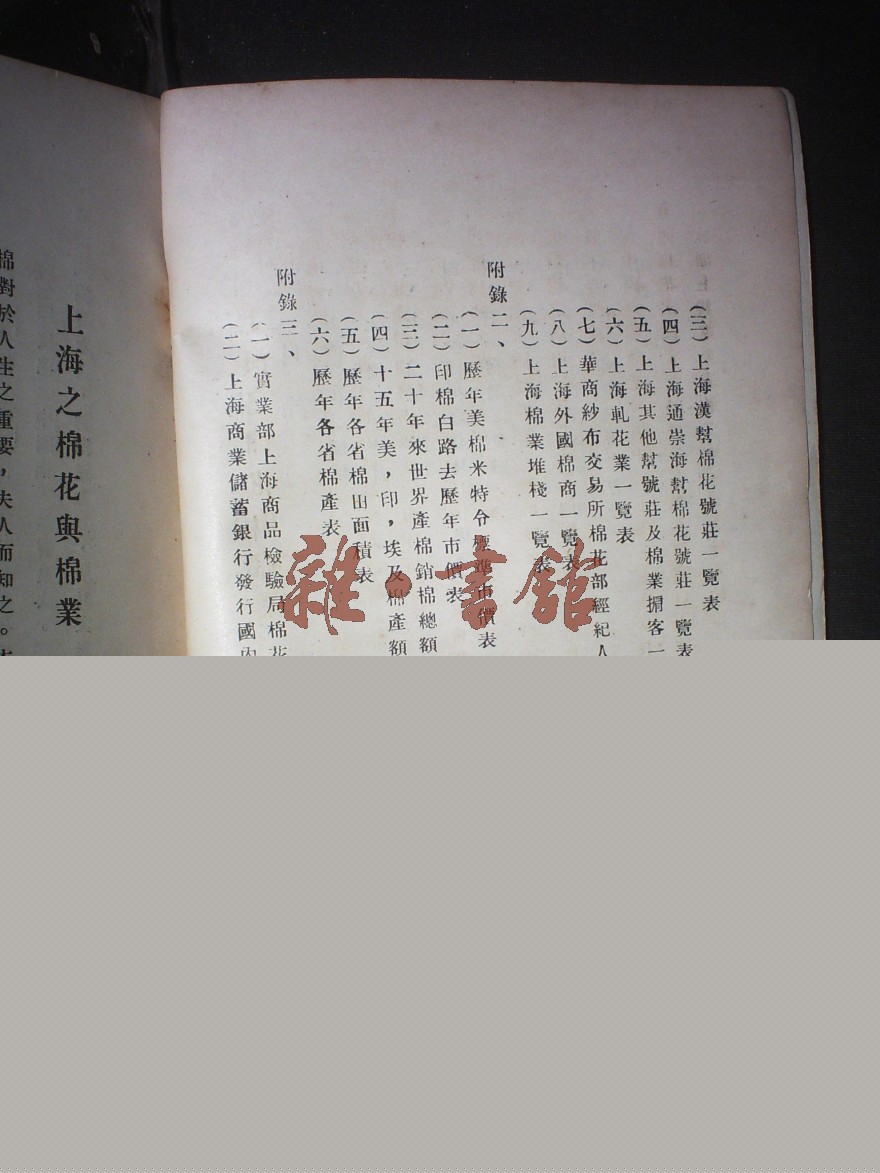 (三)上海漢幫棉花號莊一覽表
(四)上海通崇海幫棉花號莊一覽表
(五)上海其他幫號莊及棉業掮客一
(六)上海軋花業一覽表
(七)華商紗布交易所棉花部經紀人
(八)上海外國棉商一覽表
(九)上海棉業堆棧一覽表
附錄二、
(一)歷年美棉米特令標準市價表
(二)印棉白路去歷年市價表
(三)二十年來世界產棉銷棉總額
(四)十五年美，印，埃及棉產額
(五)歷年各省棉田面積表
(六)歷年各省棉產表
附錄三、
(一)實業部上海商品檢驗局棉花
(二)上海商業儲蓄銀行發行國內
上海之棉花與棉業
棉對於人生之重要，夫人而知之。
雜·書館